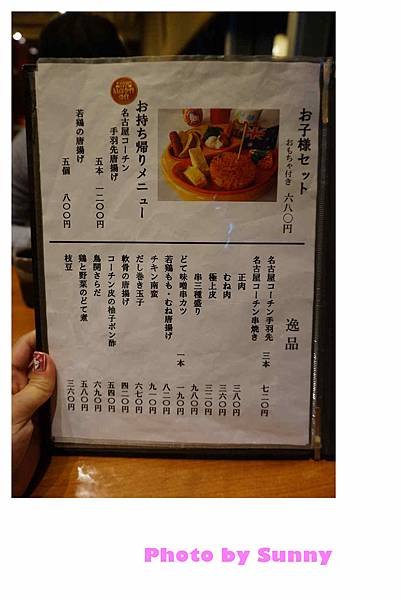 お子様セット
おもちゃ付き 六八〇円
お持ち帰りメニュー
名古屋コーチン
手羽先唐揚げ
五本 一二〇〇円
若鶏の唐揚げ
五個 八〇〇円
逸品
名古屋コーチン手羽先 三本 七二〇円
名古屋コーチン串焼き
正肉 三八〇円
むね肉 三六〇円
極上皮 三二〇円
串三種盛り 九八〇円
どて味噌串カツ 一本 一九〇円
若鶏もも・むね唐揚げ 八二〇円
チキン南蛮 九一〇円
だし巻き玉子 六七〇円
軟骨の唐揚げ 四二〇円
コーチン皮の柚子ポン酢 五四〇円
鳥開さらだ 六九〇円
鶏と野菜のどて煮 五八〇円
枝豆 三六〇円
Photo by Sunny